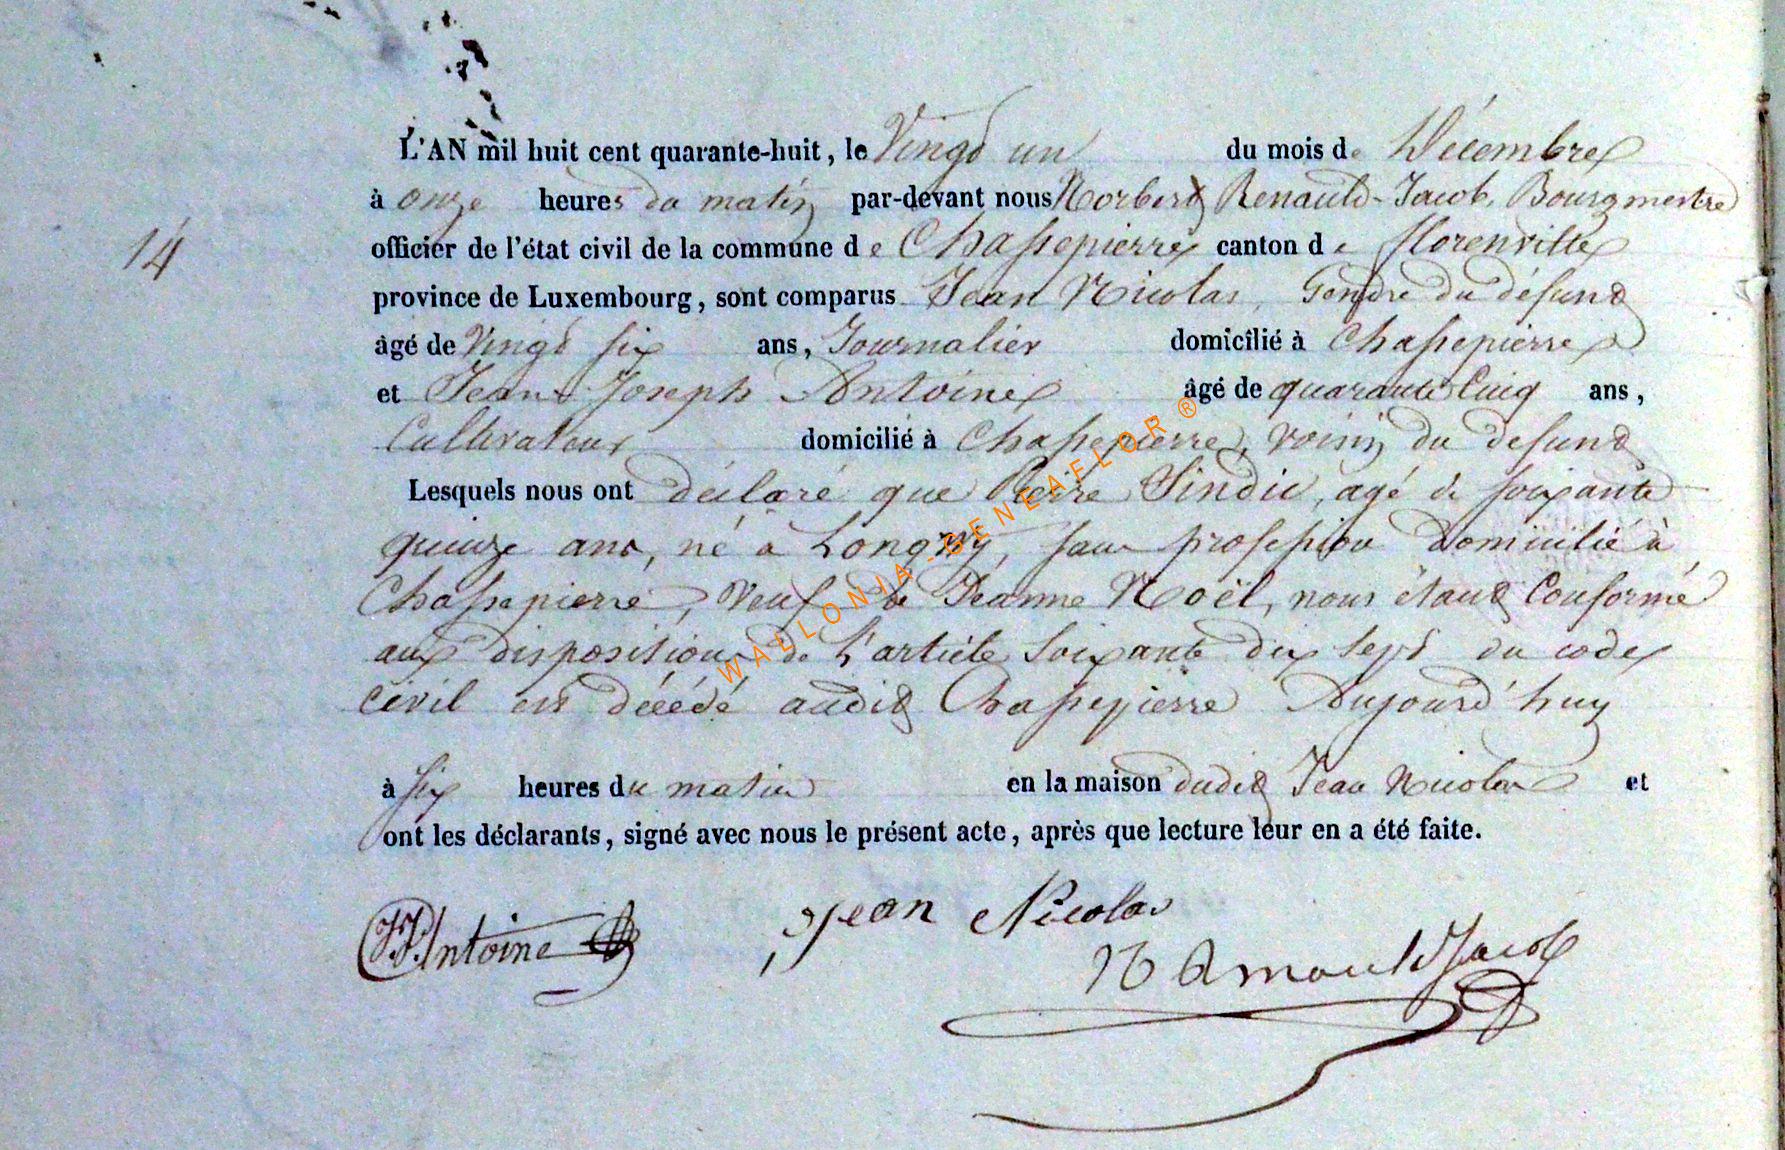 L'AN mil huit cent quarante-huit, le Vingt un du mois de Décembre
à onze heures du matin par-devant nous Norbert Renauld-Jacob, Bourgmestre
14
officier de l'état civil de la commune de Chassepierre canton de florenville
province de Luxembourg, sont comparus Jean Nicolas, Gendre du défunt
âgé de Vingt six ans, Journalier domicilié à Chassepierre
et Jean Joseph Antoine âgé de quarante Cinq ans,
Cultivateur domicilié à Chassepierre, voisin du defunt
Lesquels nous ont déclaré que Pierre Sindic, agé de soixante
quinze ans, né à Longwy, sans profession domicilié à
Chassepierre, Veuf de Jeanne Noël, nous étant Conformé
aux dispositions de l'article soixante dix sept du code
civil est décédé audit Chassepierre Aujourd'huy
à six heures du matin en la maison dudit Jean Nicolas et
ont les déclarants, signé avec nous le présent acte, après que lecture leur en a été faite.
JJAntoine Jean Nicolas
Jacob
WALLONIA-GENEAFLOR ®